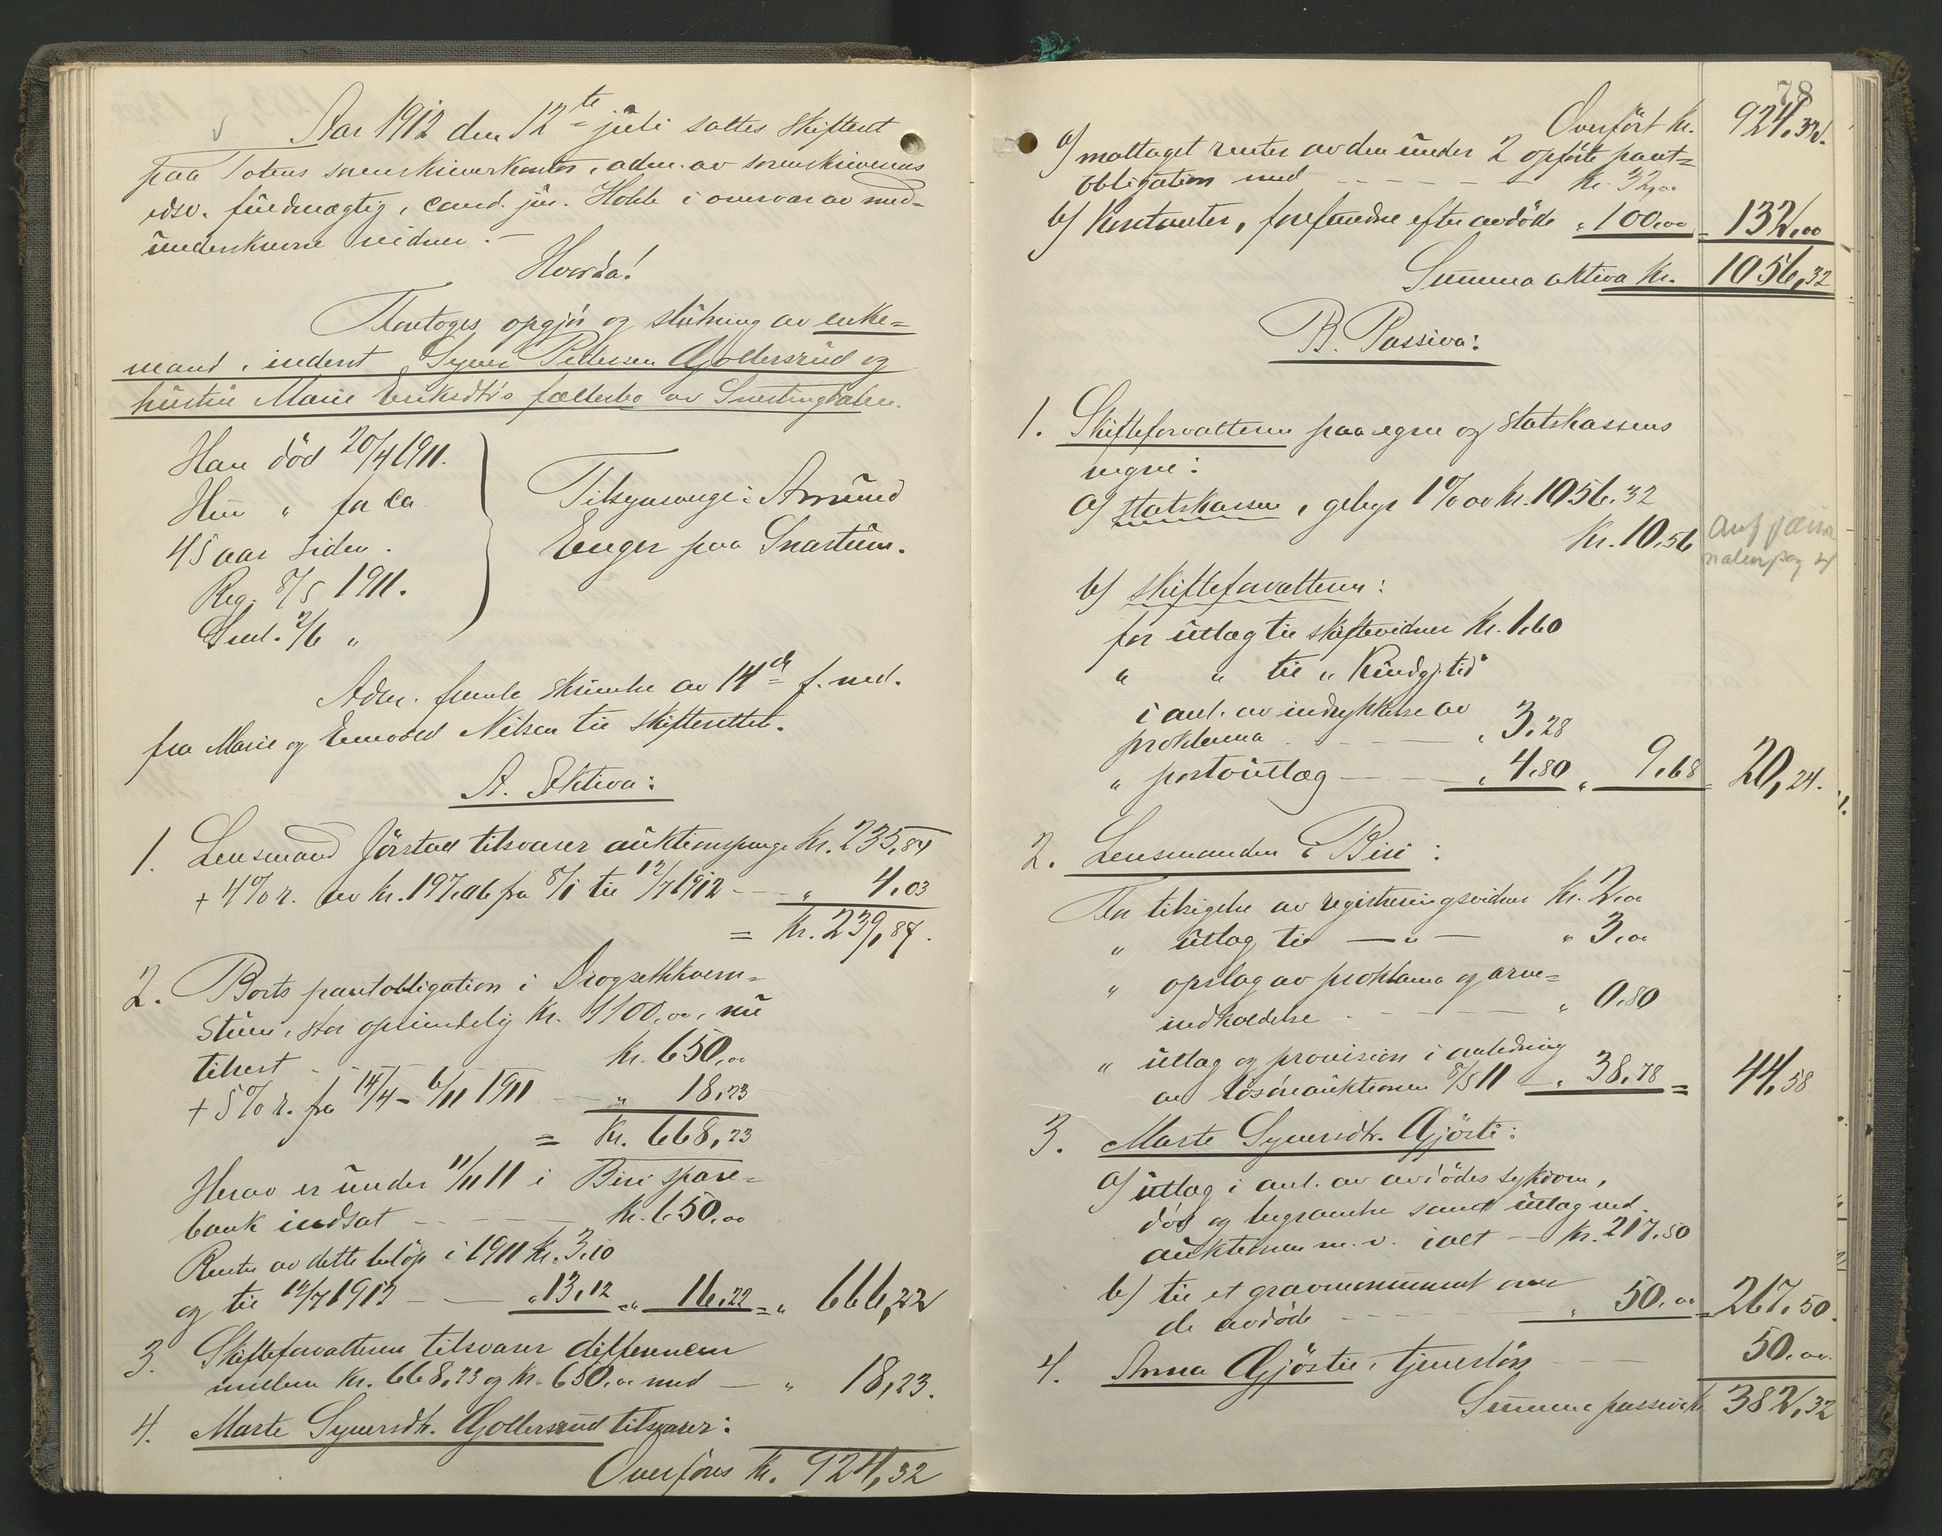 Aar 1912 den 12te juli sattes skifteret
paa Totens sorenskriverkontor, adm. av sorenskriverens
edsv. fuldmægtig, cand. jur. Holck i overvær av med-
underskrevne vidner. –
Hvorda!
Foretoges opgjør og slutning av enke-
mand, inderst Syver Pedersen Gjollersrud og
hustru Marie Eriksdtr's fællesbo av Snertingdalen.
Han död 20/4 1911.
Hun " for ca
45 aar siden.
Reg. 8/5 1911.
Sml. 2/6 "
Tilsynsverge: Amund
Enger paa Snartum.
Adm. fremla skrivelse av 14de f. md.
fra Marie og Enevold Nilsen til skifterettet.
A. Aktiva:
1. Lensmand Jörstad tilsvarer auktionspenge Kr. 235,81
+ 4% r. av kr. 197,06 fra 8/1 til 12/7 1912 – – " 4,03
= Kr. 239,87.
2. Boets pantobligation i Drogsethkvern-
stuen, stor oprindelig Kr. 1100,00, nu
tilrest – Kr. 650,00
+ 5% r. fra 14/4 – 6/11 1911 – " 18,23
= Kr. 668,23
Herav er under 11/11 11 i Biri spare-
bank indsat – – – – Kr. 650,00
Renter av dette beløp i 1911 Kr. 3,10
og til 12/7 1912 – – " 13,12 " 16,22 = " 666,22
3. Skifteforvalteren tilsvarer differencen
mellem Kr. 668,23 og Kr. 650,00 med – " 18,23.
4. Marte Syversdtr. Gjollersrud tilsvarer:
Overføres Kr. 924,32
78
Overført Kr. 924,32.
a) mottaget renter av den under 2 opførte pant-
obligation med – – – – Kr. 32,00
b) Kontanter, forefundne efter avdöde " 100,00 = 132,00
Summa aktiva Kr. 1056,32
B. Passiva:
1. Skifteforvalteren paa egne og statskassens
vegne:
a) statskassen, gebyr 1% av Kr. 1056,32
Kr. 10,56
b) skifteforvalteren:
for utlæg til skiftevidner Kr. 1,60
" " til "Kundgj. tid"
i anl. av indrykkelse av
proklama – – – " 3,28
" portoutlæg – – – " 4,80 " 9,68 = 20,24.
2. Lensmanden i Biri:
For tilsigelse av registreringsvidner Kr. 2,00
" utlæg til – " – " 3,00
" opslag av proklama og arve-
indkaldelse – – – – " 0,80
" utlæg og provision i anledning
av løsöreauktionen 8/5 11 – " 38,78 = 44,58
3. Marte Syversdtr. Gjösti:
a) utlæg i anl. av avdödes sykdom,
död og begravelse samt utlæg ved
auktionen m. v. ialt – Kr. 217,50
b) til et gravmonument over
de avdöde – – – " 50,00 = 267,50
4. Anna Gjöstie, tjenerlön – – 50,00.
Summa passiva Kr. 382,32